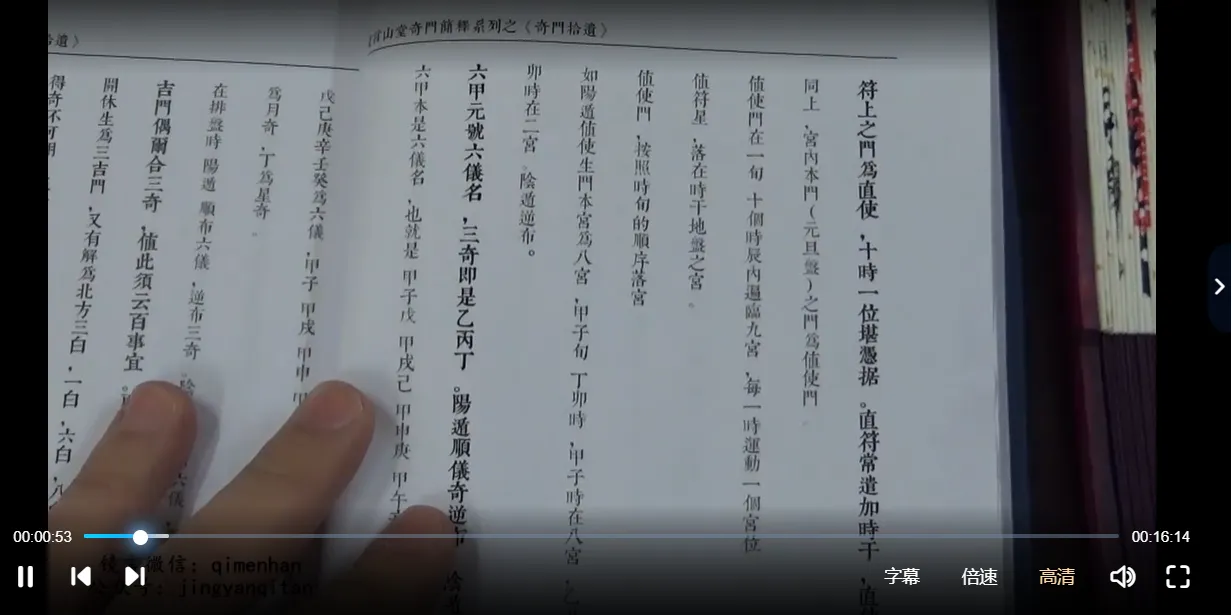 山堂奇門簡釋系列之《奇門拾遺》
符上之門爲直使,十時一位堪憑据。直符常遣加時干,直
同上,宮內本門(元旦盤)之門爲値使門
値使門在一旬 十個時辰內遍臨九宮,每一時運動一個宮位
値符星,落在時干地盤之宮。
値使門,按照時旬的順序落宮
如陽遁値使生門本宮爲八宮,甲子旬 丁卯時,甲子時在八宮,乙
卯時在二宮。陰遁逆布。
六甲元號六儀名,三奇即是乙丙丁。陽遁順儀奇逆布 陰
六甲本是六儀名,也就是 甲子戊 甲戌己 甲申庚 甲午
拾遺》
戊己庚辛壬癸爲六儀,甲子 甲戌 甲申 甲
爲月奇,丁爲星奇。
在排盤時 陽遁 順布六儀,逆布三奇。陰 六儀,
吉門偶爾合三奇,値此須云百事宜。
開休生爲三吉門,又有解爲北方三白,一白,六白,八
得奇不可用
00:00:53
00:16:14
微信:qimenhan
jingyanqitan
字幕
倍速
高清